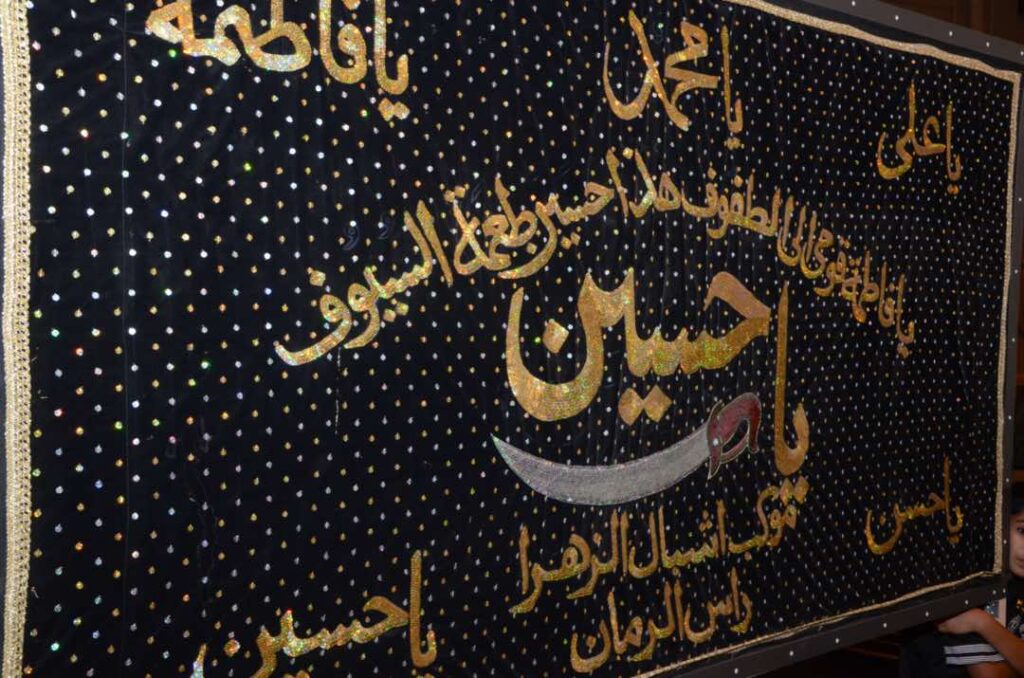 يا علي
يا محمد
يا فاطمة
يا فاطمة قومي الى الطفوف هذا حسين طعمة السيوف
يا حسين
موكب اشبال الزهرا
راس الرمان
يا حسن
يا حسين